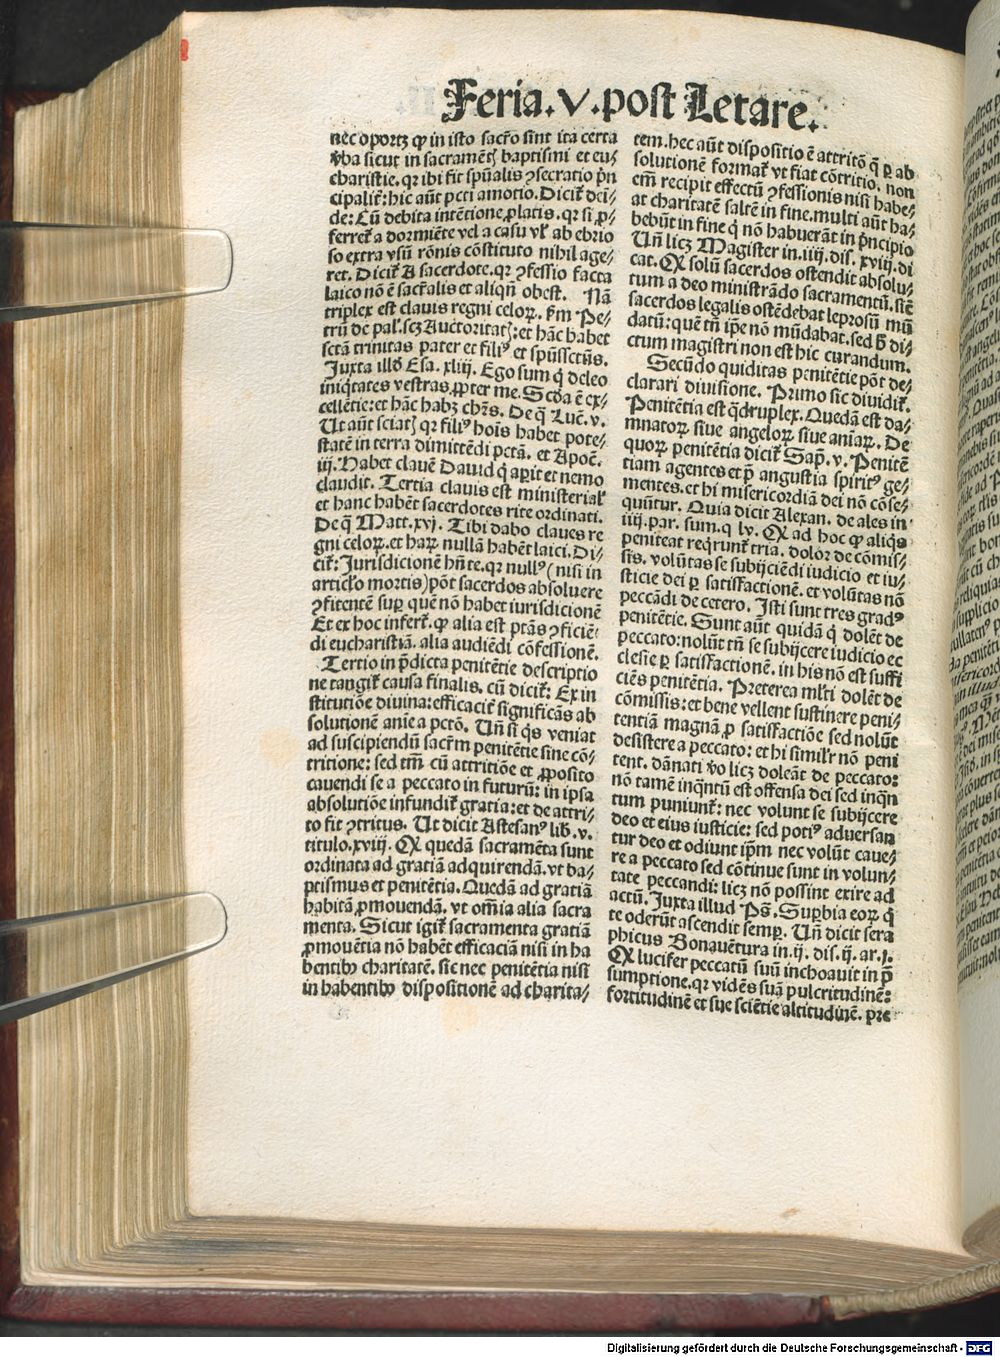 Feria. V. post Letare.
nec oportꝫ ꝙ in isto sacr̄o sint ita certa
v̓ba sicut in sacramēt̄ baptismi et eu⸗
charistie. qꝛ ibi fit spūalis ꝯsecratio p̄n
cipalit̄: hic aūt pcti amotio. Dicit̄ dei⸗
de: Cū debita intētione ꝓlatis. qꝛ si ꝓ⸗
ferret̄ a dormiēte vel a casu vl̓ ab ebrio
so extra vsū rōnis cōstituto nihil age⸗
ret. Dicit̄ A sacerdote. qꝛ ꝯfessio facta
laico nō ē sacr̄alis et aliqn̄ obest. Nā
triplex est clauis regni celoꝝ. s̄m Pe⸗
trū de pal. scꝫ Auctoritat̄: et hāc habet
sctā trinitas pater et filiꝰ et spūssctūs.
Juxta illd̓ Esa. xliij. Ego sum q̓ deleo
iniq̓tates vestras ꝓpter me. Scd̓a ē ex⸗
cellētie: et hāc habꝫ chr̄s. De q̄ Luc̄. v.
Ut aūt sciat̄ qꝛ filiꝰ hois habet pote⸗
statē in terra dimittēdi pctā. et Apoc̄.
iij. Habet clauē Dauid q̓ aꝑit et nemo
claudit. Tertia clauis est ministerial̓
et hanc habēt sacerdotes rite ordinati.
De q̄ Matt. xvj. Tibi dabo claues re
gni celoꝝ. et haꝝ nullā habēt laici. Di⸗
cit̄: Jurisdicionē hn̄te. qꝛ nullꝰ (nisi in
articl̓o mortis) pōt sacerdos absoluere
ꝯfitentē suꝑ quē nō habet iurisdicionē
Et ex hoc infert̄. ꝙ alia est ptās ꝯficiē⸗
di eucharistiā. alia audiēdi cōfessionē.
Tertio in p̄dicta penitētie descriptio
ne tangit̄ causa finalis. cū dicit̄: Ex in
stitutiōe diuina: efficacit̄ significās ab
solutionē anie a pctō. Un̄ si q̓s veniat
ad suscipiendū sacr̄m penitētie sine cō⸗
tritione: sed tm̄ cū attritiōe et ꝓposito
cauendi se a peccato in futurū: in ipsa
absolutiōe infundit̄ gratia: et de attri⸗
to fit ꝯtritus. Ut dicit Astesanꝰ lib. v.
titulo. xviij. Ꝙ quedā sacramēta sunt
ordinata ad gratiā adquirendā. vt ba⸗
ptismus et penitētia. Quedā ad gratiā
habitā ꝓmouendā. vt om̄ia alia sacra
menta. Sicut igit̄ sacramenta gratiā
ꝓmouētia nō habēt efficaciā nisi in ha
bentibꝰ charitatē. sic nec penitētia nisi
in habentibꝰ dispositionē ad charita⸗
tem. hec aūt dispositio ē attritō q̄ ꝑ ab
solutionē format̄ vt fiat cōtritio. non
em̄ recipit effectū ꝯfessionis nisi habe⸗
at charitatē saltē in fine. multi aūt ha⸗
bebūt in fine q̓ nō habuerāt in p̄ncipio
Un̄ licꝫ Magister in. iiij. dis. xviij. di
cat. Ꝙ solū sacerdos ostendit absolu⸗
tum a deo ministrādo sacramentū. sic̄
sacerdos legalis ostēdebat leprosū mū
datū: quē tn̄ ip̄e nō mūdabat. sed h̓ di⸗
ctum magistri non est hic curandum.
Secūdo quiditas penitētie pōt de⸗
clarari diuisione. Primo sic diuidit̄.
Penitētia est q̄druplex. Quedā est da⸗
mnatoꝝ siue angeloꝝ siue aniaꝝ. De
quoꝝ penitētia dicit̄ Sap̄. v. Penitē
tiam agentes et p̄ angustia spiritꝰ ge⸗
mentes. et hi misericordiā dei nō cōse⸗
quūtur. Quia dicit Alexan. de ales in
iiij. par. sum. q lv. Ꝙ ad hoc ꝙ aliq̓s
peniteat req̓runt̄ tria. dolor de cōmis⸗
sis. volūtas se subijciēdi iudicio et iu⸗
sticie dei ꝑ satisfactionē. et volūtas nō
peccādi de cetero. Isti sunt tres gradꝰ
penitētie. Sunt aūt quidā q̓ dolēt de
peccato: nolūt tn̄ se subijcere iudicio ec
clesie ꝑ satisfactionē. in his nō est suffi
ciēs penitētia. Preterea ml̓ti dolēt de
cōmissis: et bene vellent sustinere peni⸗
tentiā magnā ꝓ satisfactiōe sed nolūt
desistere a peccato: et hi simil̓r nō peni
tent. dānati v̓o licꝫ doleāt de peccato:
nō tamē inq̄ntū est offensa dei sed inq̄n
tum puniunt̄: nec volunt se subijcere
deo et eius iusticie: sed potiꝰ aduersan
tur deo et odiunt ip̄m nec volūt caue⸗
re a peccato sed cōtinue sunt in volun⸗
tate peccandi: licꝫ nō possint exire ad
actū. Juxta illud Pṡ. Suꝑbia eoꝝ q̓
te oderūt ascendit semꝑ. Un̄ dicit sera
phicus Bonauētura in. ij. dis. ij. ar. j.
Ꝙ lucifer peccatū suū inchoauit in p̄
sumptione. qꝛ vidēs suā pulcritudinē:
fortitudinē et sue sciētie altitudinē. pre
Digitalisierung gefördert durch die Deutsche Forschungsgemeinschaft - DFG